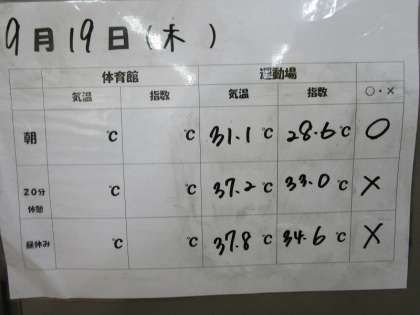 9月19日(木)
体育館 運動場
気温 指数 気温 指数 ○・×
朝 ℃ ℃ 31.1℃ 28.6℃ ○
20分休憩 ℃ ℃ 37.2℃ 33.0℃ ×
昼休み ℃ ℃ 37.8℃ 34.6℃ ×